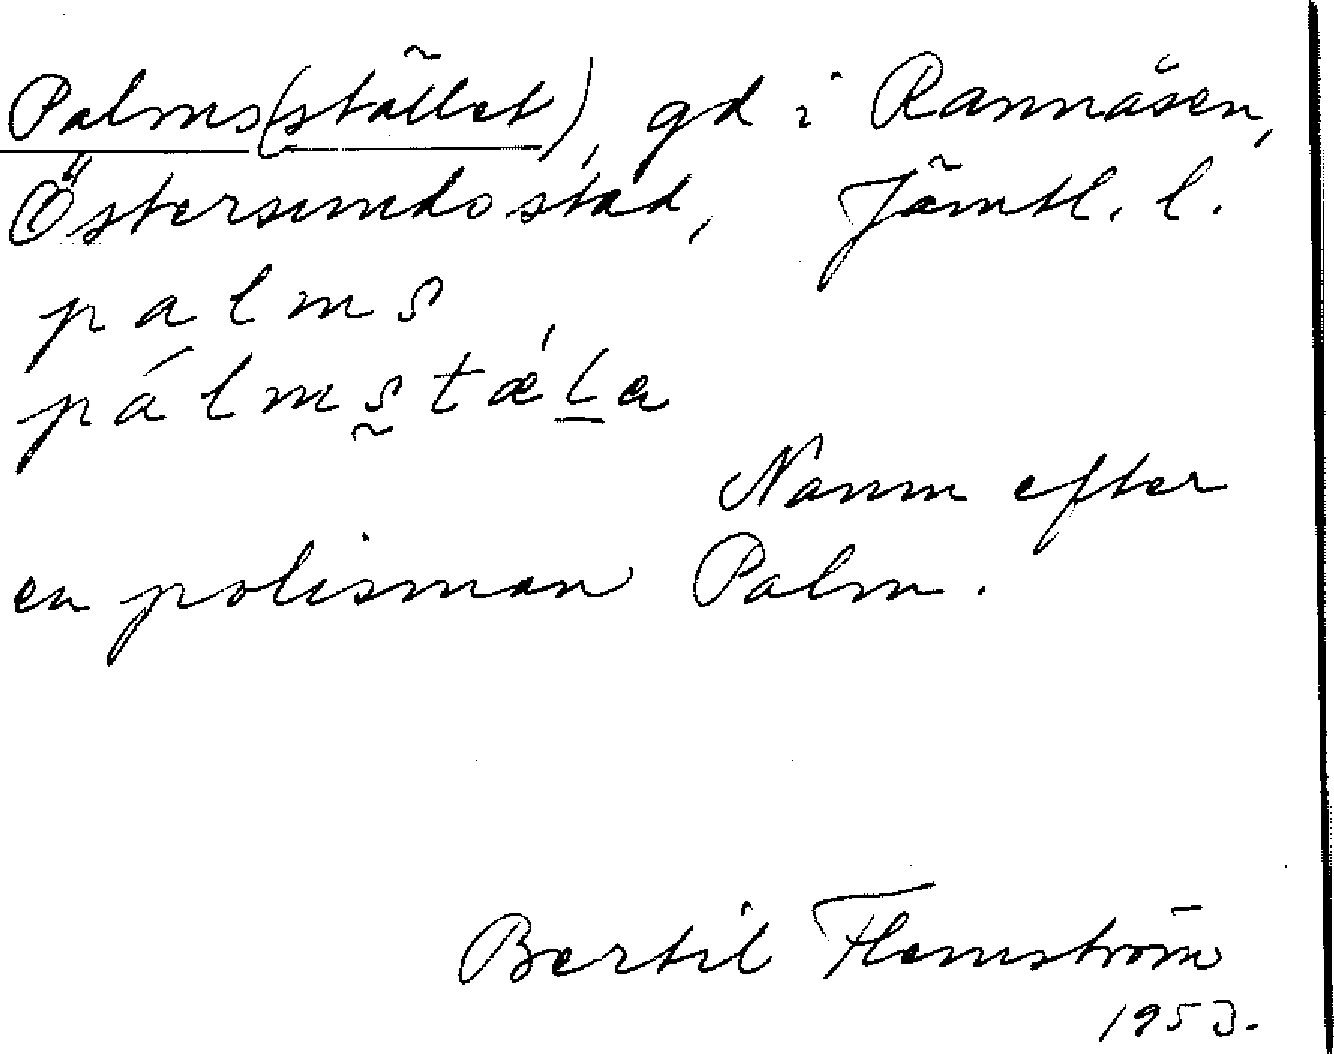 Palms(stället), gd i Rannåsen,
Östersunds stad, Jämtl. l.
palms
pálms̰tǽl̲a
Namn efter
en polisman Palm.
Bertil Flemström
1953.